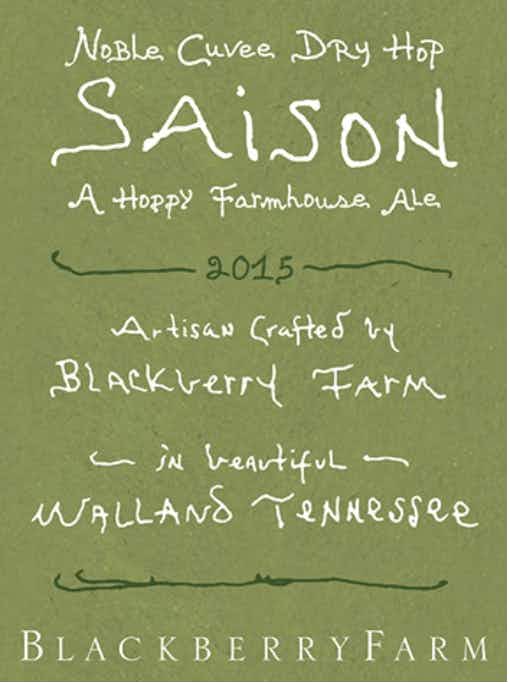 Noble Cuvee Dry Hop
Saison
A Hoppy Farmhouse Ale
2015
Artisan Crafted by
Blackberry Farm
in beautiful
Walland Tennessee
BlackberryFarm